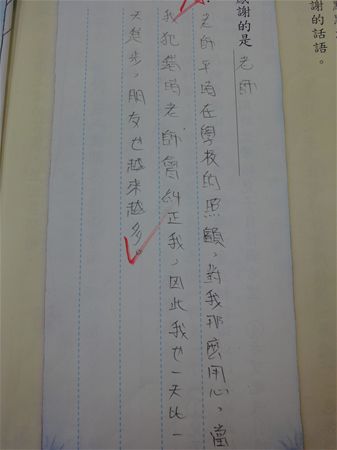 謝的話語。
感謝的是 老師
老師平時在學校的照顧,對我那麼用心,當
我犯錯時老師會糾正我,因此我也一天比一
天進步,朋友也越來越多。